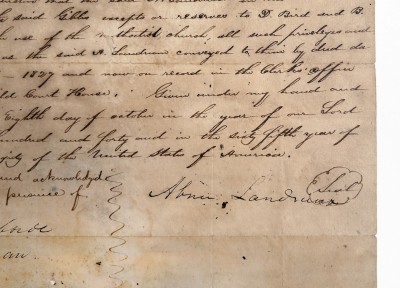 said Gibbs excepts or reserves to D. Bird and B.
use of the Methodist church, all such privileges and
as the said A. Landrum conveyed to them by deed da-
- 1837 and now on record in the Clerks office
old Court House. Given under my hand and
Eighth day of october in the year of our Lord
hundred and forty and in the sixty fifth year of
of the United State of America.
and acknowledged
presence of
Abner Landrum Seal